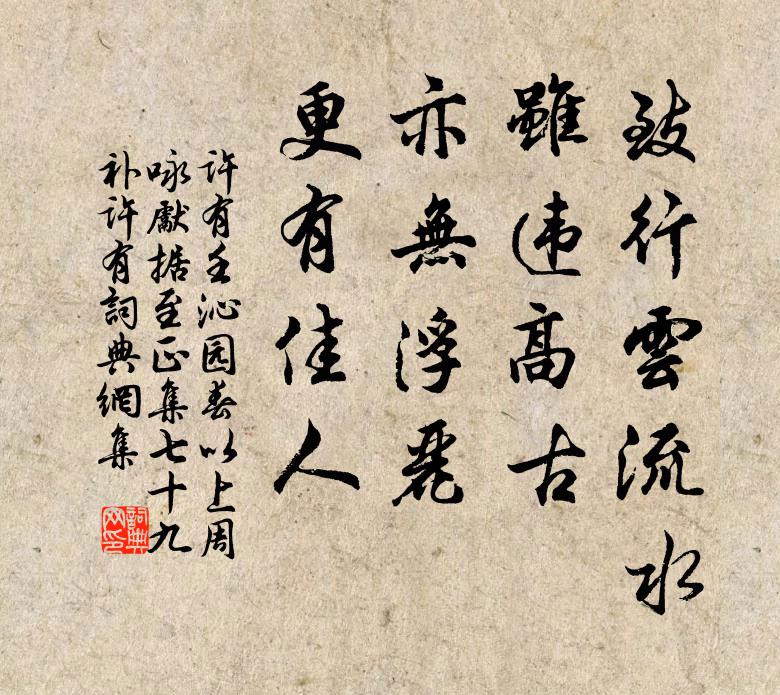 致行雲流水
雖违高古
亦無浮麗
更有佳人
許有壬沁园春以上周
咏獻据至正集七十九
补許有詞典網集
詞典网印